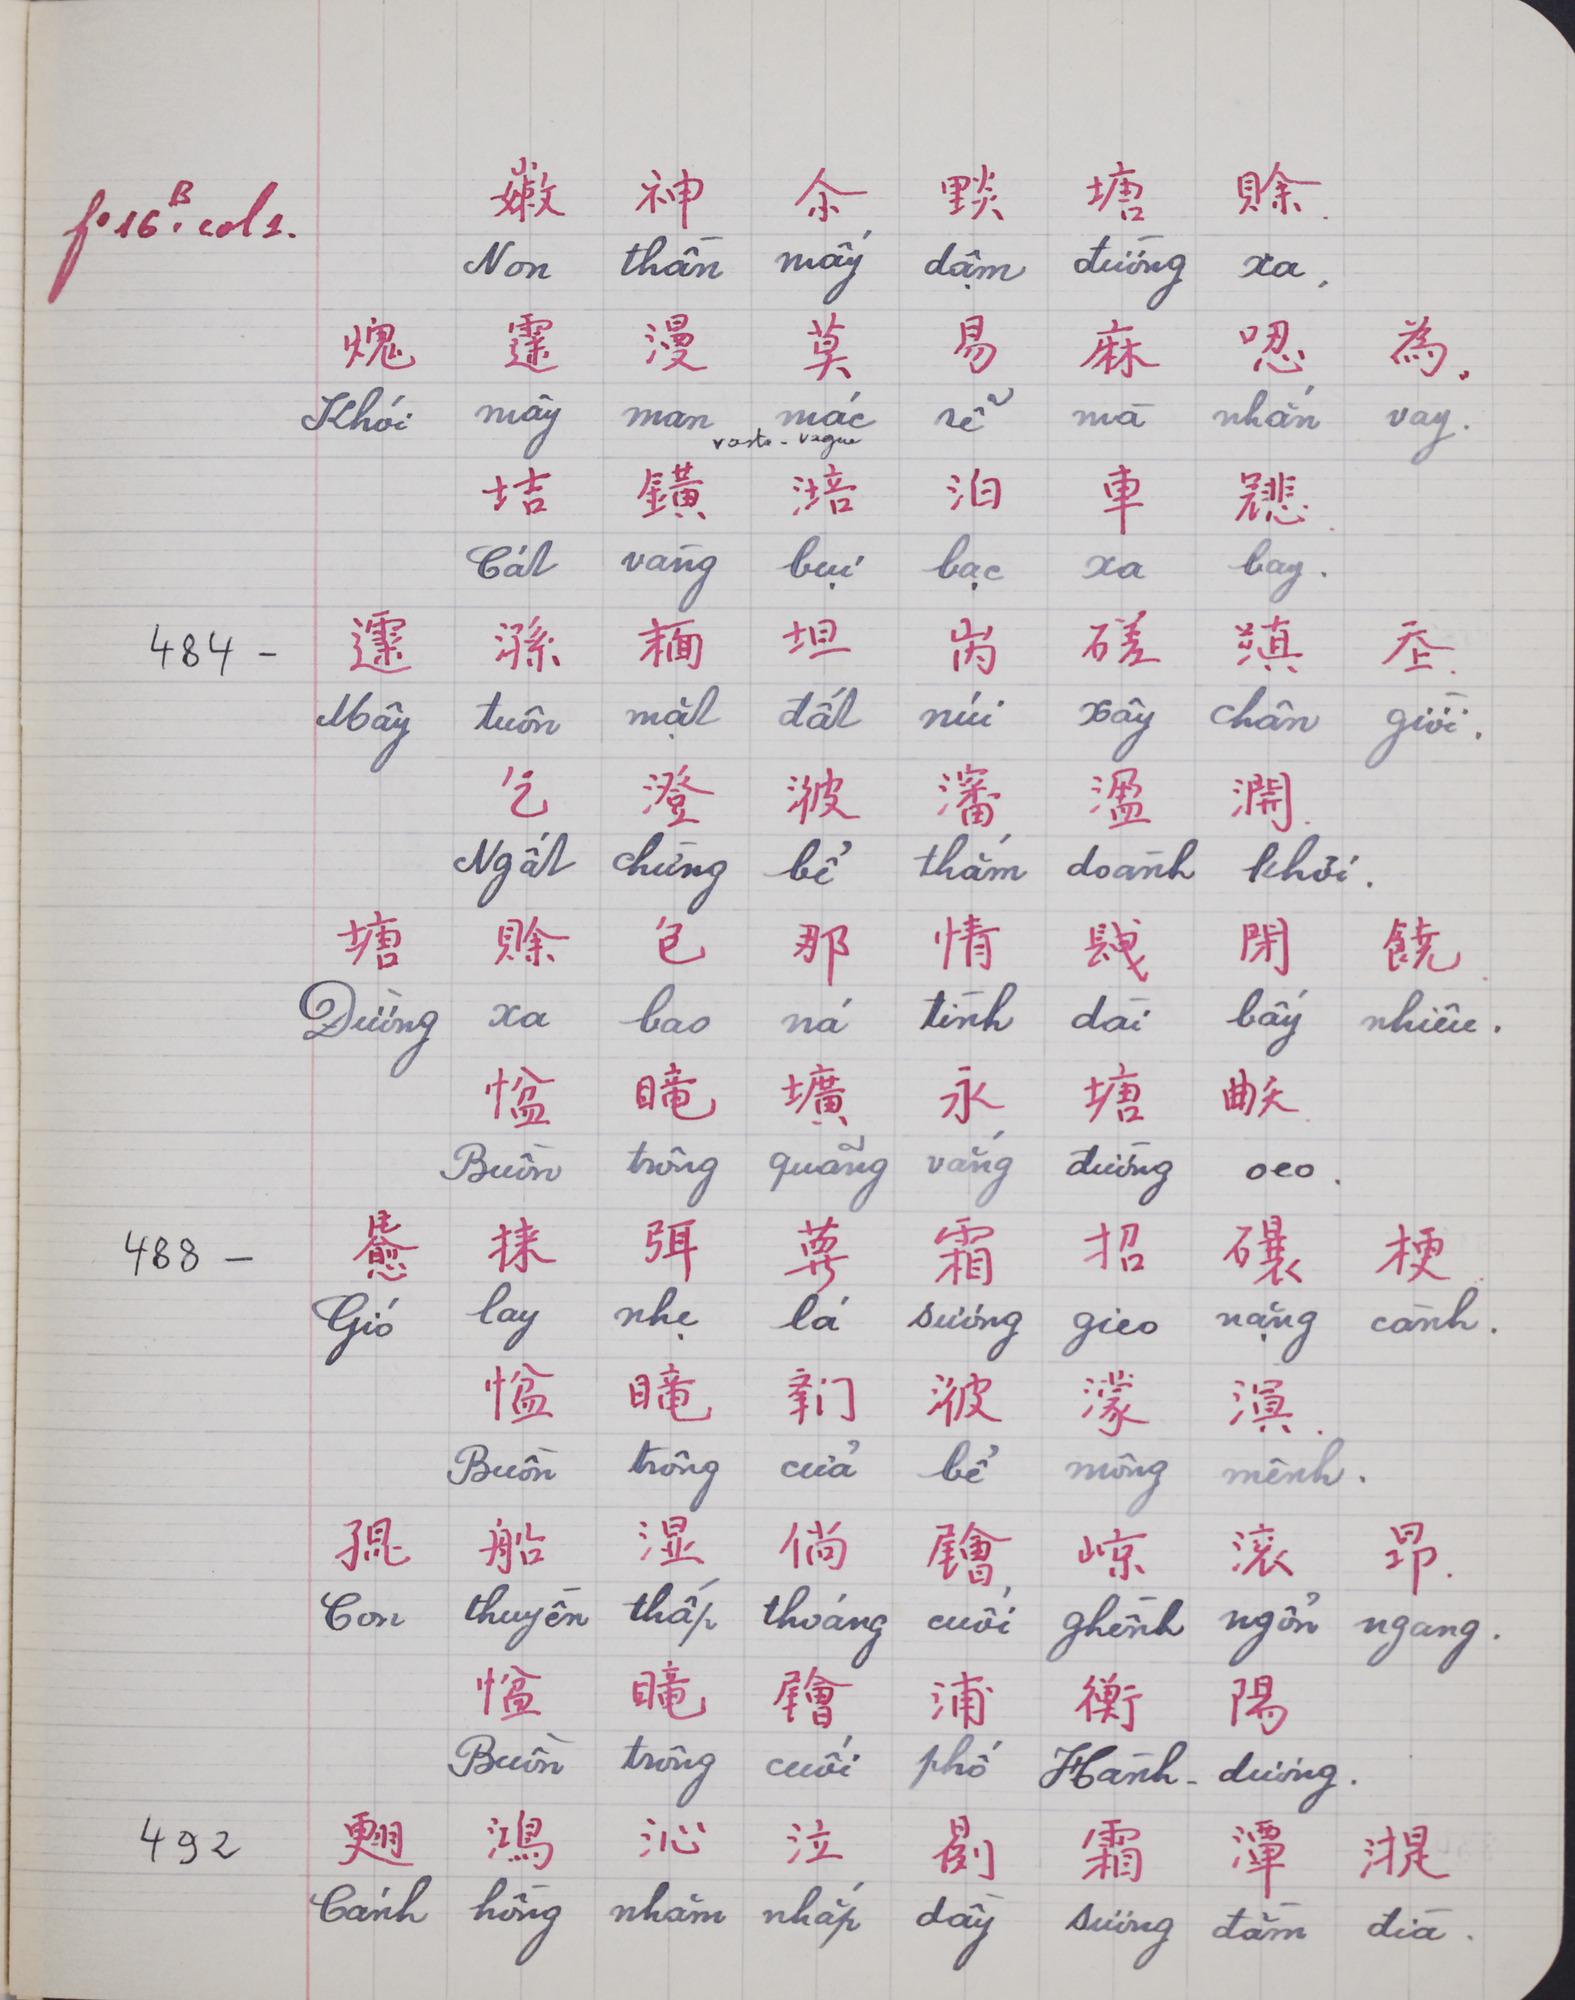 f° 16 B. col 1.
神 余 塘 賖
Non thần mấy dậm đường xa,
漫 莫 易 麻 唿 為.
Khói mây man mác rễ mà nhắn vay.
vaste - vague
𡋥 鐄 涪 泊 車
Cát vàng bụi bạc xa bay.
484 - 坦 磋
Mây tuôn mặt đất núi xây chân giời.
乞 澄 瀋 溫
Ngất chừng bể thẳm doành khơi.
塘 賖 包 那 情 閉 饒
Đường xa bao ná tình dài bấy nhiêu.
𢞂 壙 永 塘
Buồn trông quãng vắng đường oeo.
488 - 弭 霜 招 梗
Gió lay nhẹ lá sương gieo nặng cành.
𢞂 濛 溟
Buồn trông cửa bể mông mênh.
船 湿 倘 滚 昂
Con thuyền thấp thoáng cuối ghềnh ngổn ngang.
𢞂 浦 衡 陽
Buồn trông cuối phố Hành - dương.
492 鴻 沁 泣 霜 潭
Cánh hồng nhăm nhắp dầy sương đầm đìa.